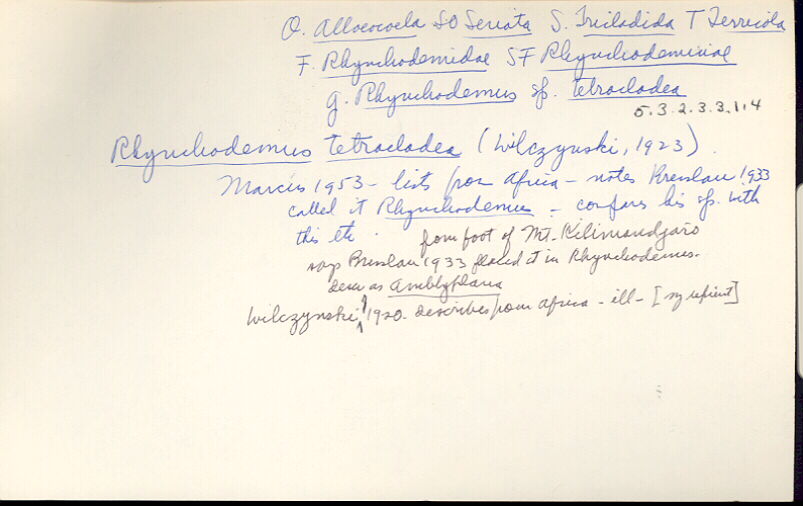 O. Alloeocoela SO Seriata S. Tricladida T Terricola
F. Rhynchodemidae SF Rhynchodeminae
g. Rhynchodemus sp. tetrocladea
5.3.2.3.3.1.4
Rhynchodemus tetrocladea (Wilczynski, 1923).
Marcus 1953 - lists from Africa - notes Bresslau 1933
called it Rhynchodemus - confers his sp. with
this etc. from foot of Mt. Kilimandjaro
says Bresslau 1933 placed it in Rhynchodemus.
desc as Amblyplana
Wilczynski 1920 - describes from Africa - ill - [ ]